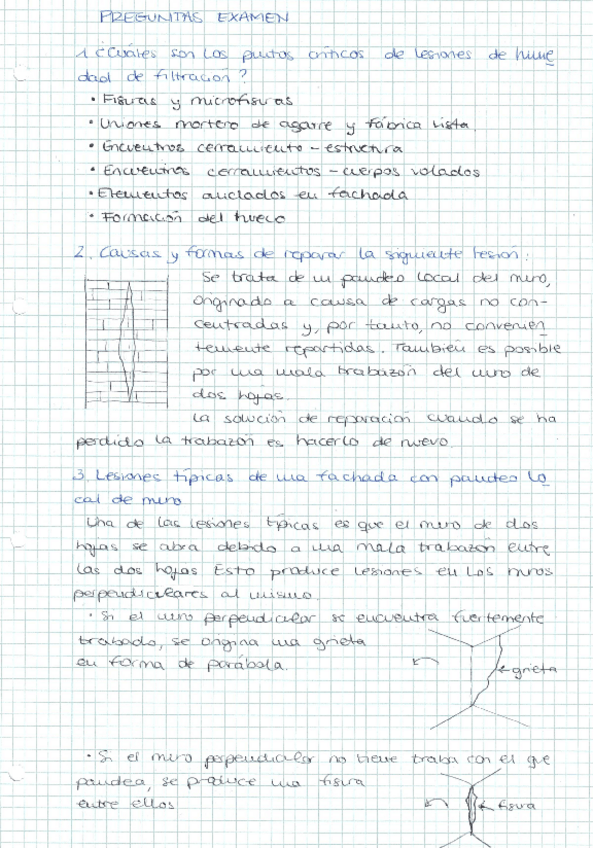 PREGUNTAS EXAMEN
1. ¿Cuáles son los puntos críticos de lesiones de hume
dad de filtración?
• Fisuras y microfisuras
• Uniones mortero de agarre y fábrica vista.
• Encuentros cerramiento - estructura
• Encuentros cerramientos - cuerpos volados
• Elementos anclados en fachada
• Formación del hueco
2. Causas y formas de reparar la siguiente lesión:
Se trata de un pandeo local del muro,
originado a causa de cargas no con-
centradas y, por tanto, no convenien
temente repartidas. También es posible
por una mala trabazón del muro de
dos hojas.
La solución de reparación cuando se ha
perdido la trabazón es hacerlo de nuevo.
3. Lesiones típicas de una fachada con pandeo lo
cal de muro
Una de las lesiones típicas es que el muro de dos
hojas se abra debido a una mala trabazón entre
las dos hojas. Esto produce lesiones en los muros
perpendiculares al mismo.
• Si el muro perpendicular se encuentra fuertemente
trabado, se origina una grieta
en forma de parábola.
grieta
• Si el muro perpendicular no tiene traba con el que
pandea, se produce una fisura
entre ellos
fisura